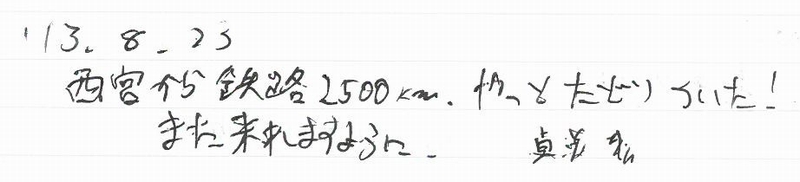 '13. 8. 23
西宮から鉄路2500km. やっとたどりついた!
また来れますように.